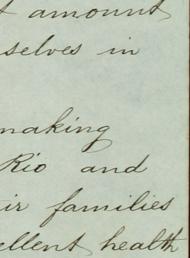 t amount
selves in
making
Rio and
ir families
ellent health